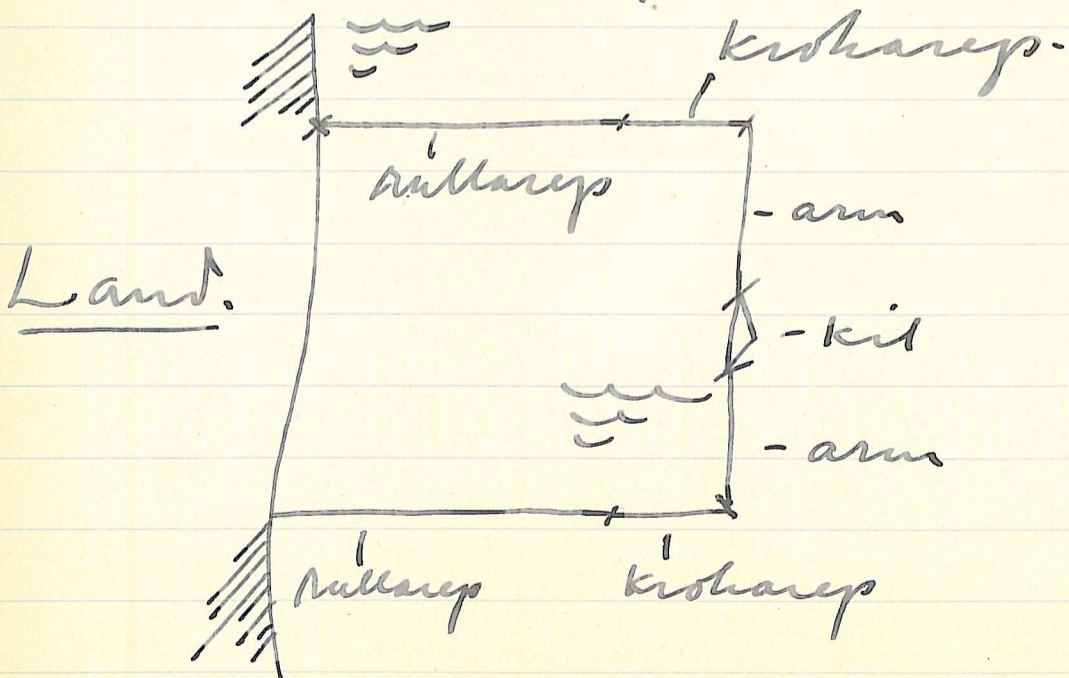 Krokarep-
rullarep
- arm
Land.
- Kil
- arm
rullarep Krokarep